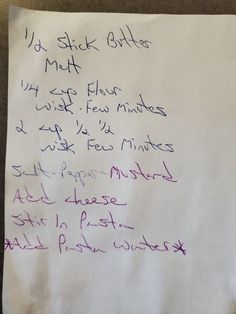 1/2 Stick Butter
Melt
1/4 cup Flour
wisk - Few Minutes
2 cup 1/2 1/2
wisk Few Minutes
Salt - Pepper - Mustard
Add cheese
Stir In Pasta
*Add Pasta Water*